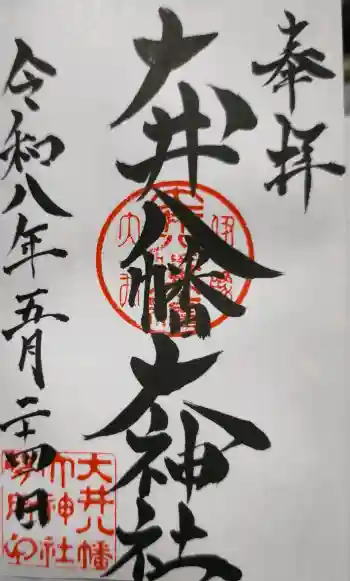 奉拝
大井八幡大神社
令和八年五月二十四日
大井八幡
大神社